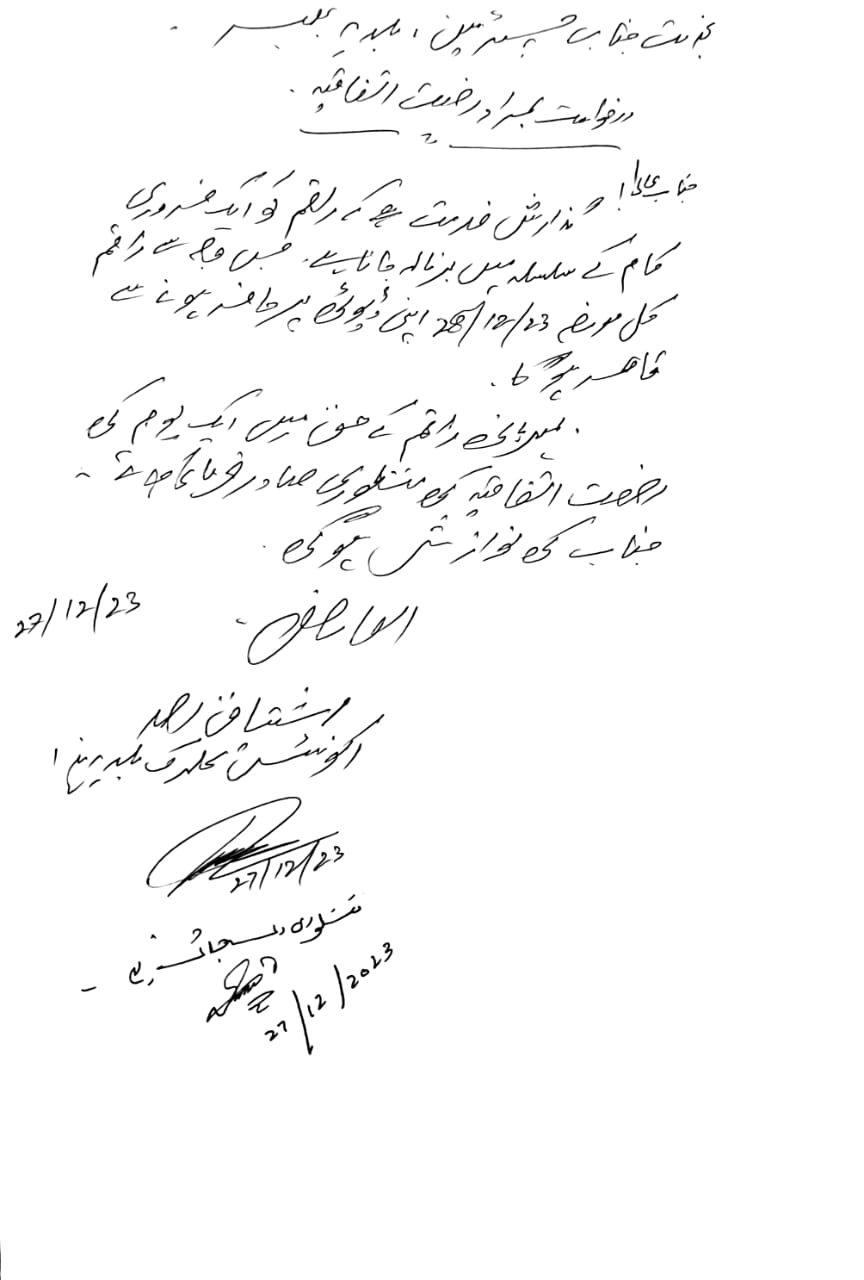 بخدمت جناب چیئرمین، بلدیہ بھمبر۔
درخواست بمراد رخصت اتفاقیہ۔
جناب عالی! گذارش خدمت ہے کہ راقم کو ایک ضروری
کام کے سلسلہ میں برنالہ جانا ہے۔ جس وجہ سے راقم
کل مورخہ 28/12/23 اپنی ڈیوٹی پر حاضر ہونے سے
قاصر ہو گا۔
راقم کے حق میں ایک یوم کی
رخصت اتفاقیہ کی منظوری صادر فرمائی جائے۔
جناب کی نوازش ہو گی۔
العارض۔
27/12/23
مشتاق احمد
اکونٹس کلرک بلدیہ ہذا
27/12/23
منظوری دی جاتی ہے۔
27/12/2023